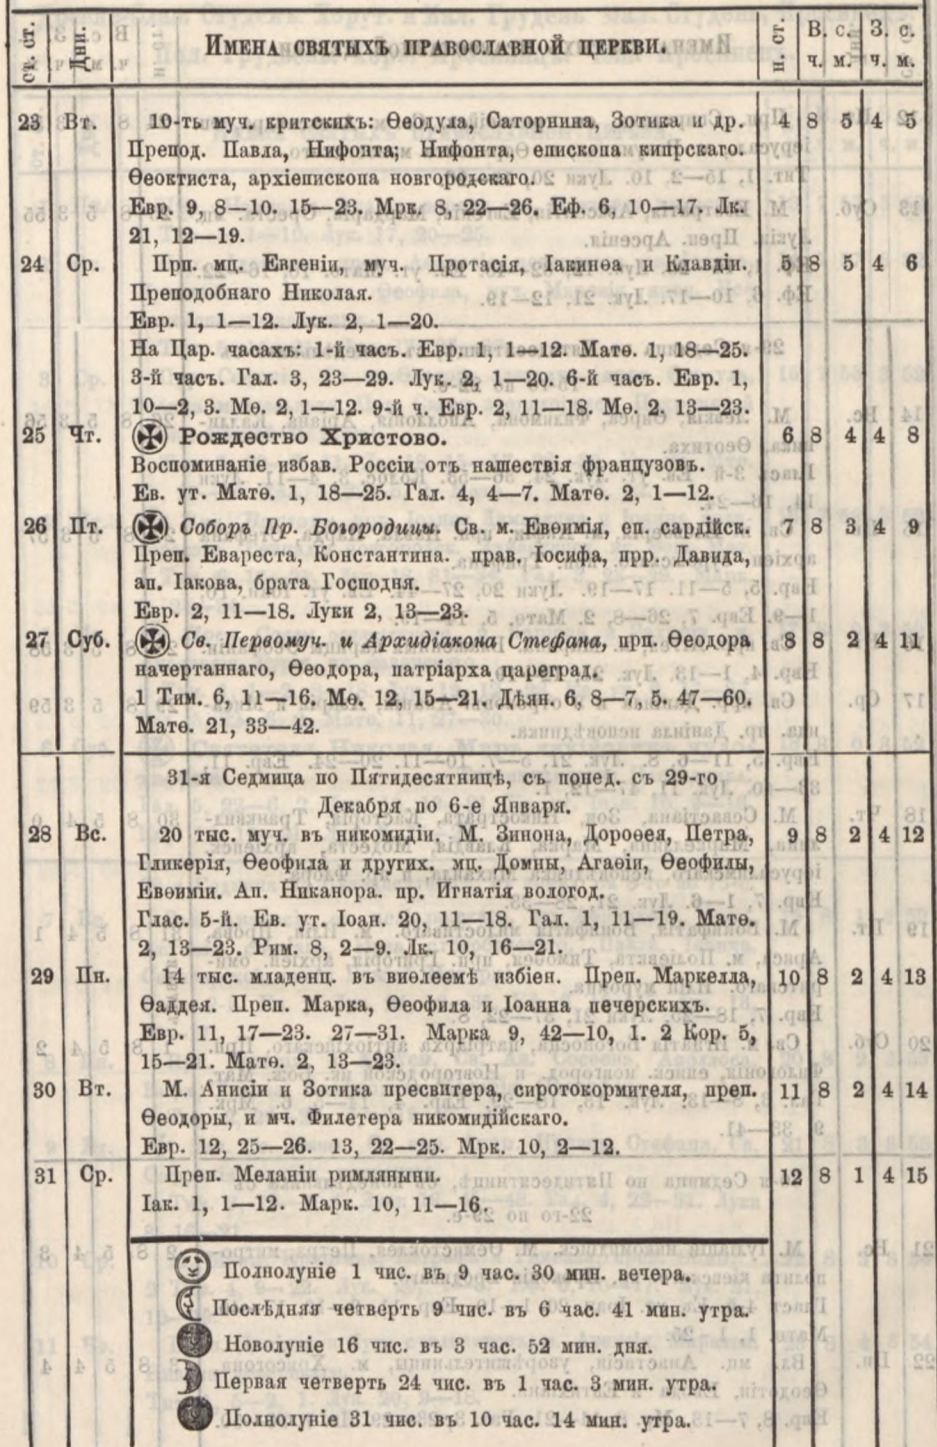 ст. ст. Дни. Имена святыхъ православной церкви. н. ст. В. с. З. с.
ч. м. ч. м.
23 Вт. 10-ть муч. критскихъ: Ѳеодула, Саторнина, Зотика и др. 4 8 5 4 5
Препод. Павла, Нифонта; Нифонта, епископа кипрскаго.
Ѳеоктиста, архіепископа новгородскаго.
Евр. 9, 8—10. 15—23. Мрк. 8, 22—26. Еф. 6, 10—17. Лк.
21, 12—19.
24 Ср. Прп. мц. Евгеніи, муч. Протасія, Іакинѳа и Клавдіи. 5 8 5 4 6
Преподобнаго Николая.
Евр. 1, 1—12. Лук. 2, 1—20.
На Цар. часахъ: 1-й часъ. Евр. 1, 1—12. Матѳ. 1, 18—25.
3-й часъ. Гал. 3, 23—29. Лук. 2, 1—20. 6-й часъ. Евр. 1,
10—2, 3. Мѳ. 2, 1—12. 9-й ч. Евр. 2, 11—18. Мѳ. 2. 13—23.
25 Чт. Рождество Христово. 6 8 4 4 8
Воспоминаніе избав. Россіи отъ нашествія французовъ.
Ев. ут. Матѳ. 1, 18—25. Гал. 4, 4—7. Матѳ. 2, 1—12.
26 Пт. Соборъ Пр. Богородицы. Св. м. Евѳимія, еп. сардійск. 7 8 3 4 9
Преп. Евареста, Константина. прав. Іосифа, прр. Давида,
ап. Іакова, брата Господня.
Евр. 2, 11—18. Луки 2, 13—23.
27 Суб. Св. Первомуч. и Архидіакона Стефана, прп. Ѳеодора 8 8 2 4 11
начертаннаго, Ѳеодора, патріарха цареград.
1 Тим. 6, 11—16. Мѳ. 12, 15—21. Дѣян. 6, 8—7, 5. 47—60.
Матѳ. 21, 33—42.
31-я Седмица по Пятидесятницѣ, съ понед. съ 29-го
Декабря по 6-е Января.
28 Вс. 20 тыс. муч. въ никомидіи. М. Зинона, Дороѳея, Петра, 9 8 2 4 12
Гликерія, Ѳеофила и других. мц. Домны, Агаѳіи, Ѳеофилы,
Евѳиміи. Ап. Никанора. пр. Игнатія вологод.
Глас. 5-й. Ев. ут. Іоан. 20, 11—18. Гал. 1, 11—19. Матѳ.
2, 13—23. Рим. 8, 2—9. Лк. 10, 16—21.
29 Пн. 14 тыс. младенц. въ виѳлеемѣ избіен. Преп. Маркелла, 10 8 2 4 13
Ѳаддея. Преп. Марка, Ѳеофила и Іоанна печерскихъ.
Евр. 11, 17—23. 27—31. Марка 9, 42—10, 1. 2 Кор. 5,
15—21. Матѳ. 2, 13—23.
30 Вт. М. Анисіи и Зотика пресвитера, сиротокормителя, преп. 11 8 2 4 14
Ѳеодоры, и мч. Филетера никомидійскаго.
Евр. 12, 25—26. 13, 22—25. Мрк. 10, 2—12.
31 Ср. Преп. Меланіи римляныни. 12 8 1 4 15
Іак. 1, 1—12. Марк. 10, 11—16.
Полнолуніе 1 чис. въ 9 час. 30 мин. вечера.
Послѣдняя четверть 9 чис. въ 6 час. 41 мин. утра.
Новолуніе 16 чис. въ 3 час. 52 мин. дня.
Первая четверть 24 чис. въ 1 час. 3 мин. утра.
Полнолуніе 31 чис. въ 10 час. 14 мин. утра.